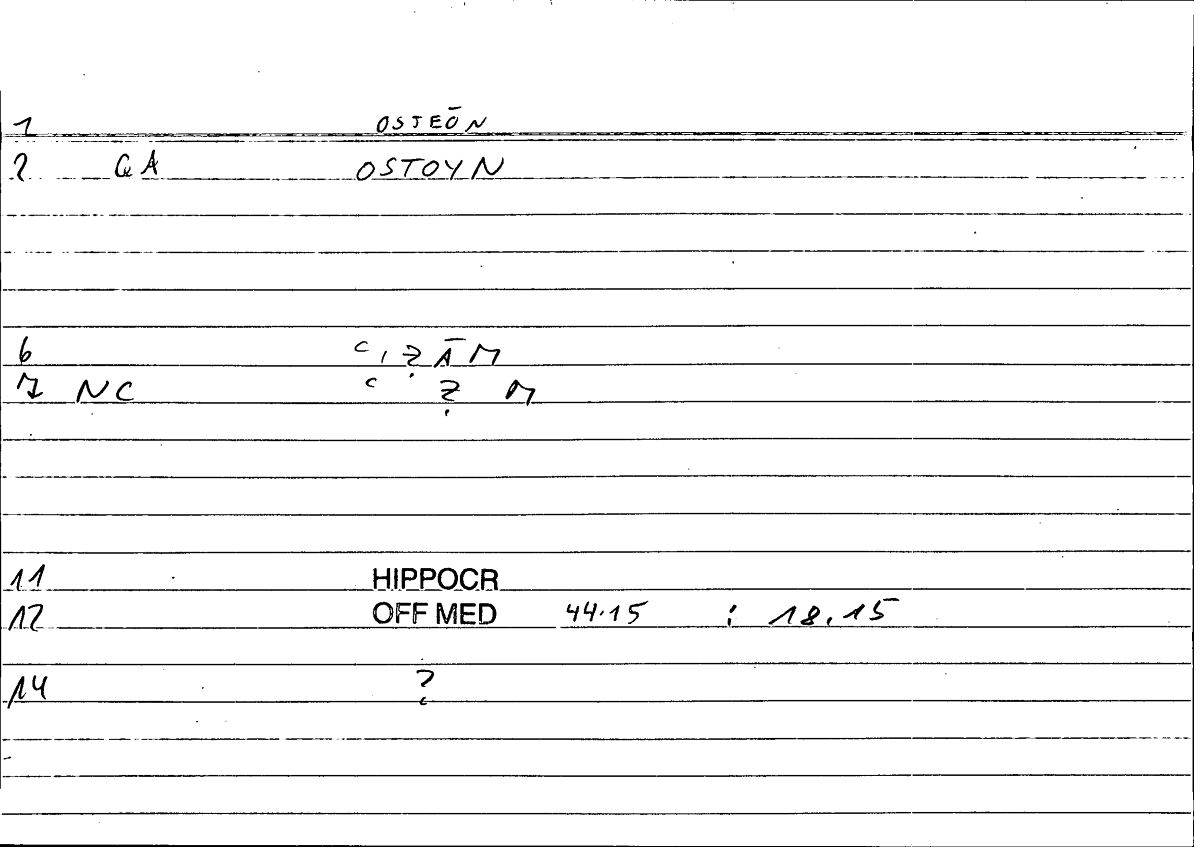 1 OSTEŌN
2 GA OSTOYN
6 C, ? Ā M
7 NC C ? M
11 HIPPOCR
12 OFF MED 44.15 : 18.15
14 ?